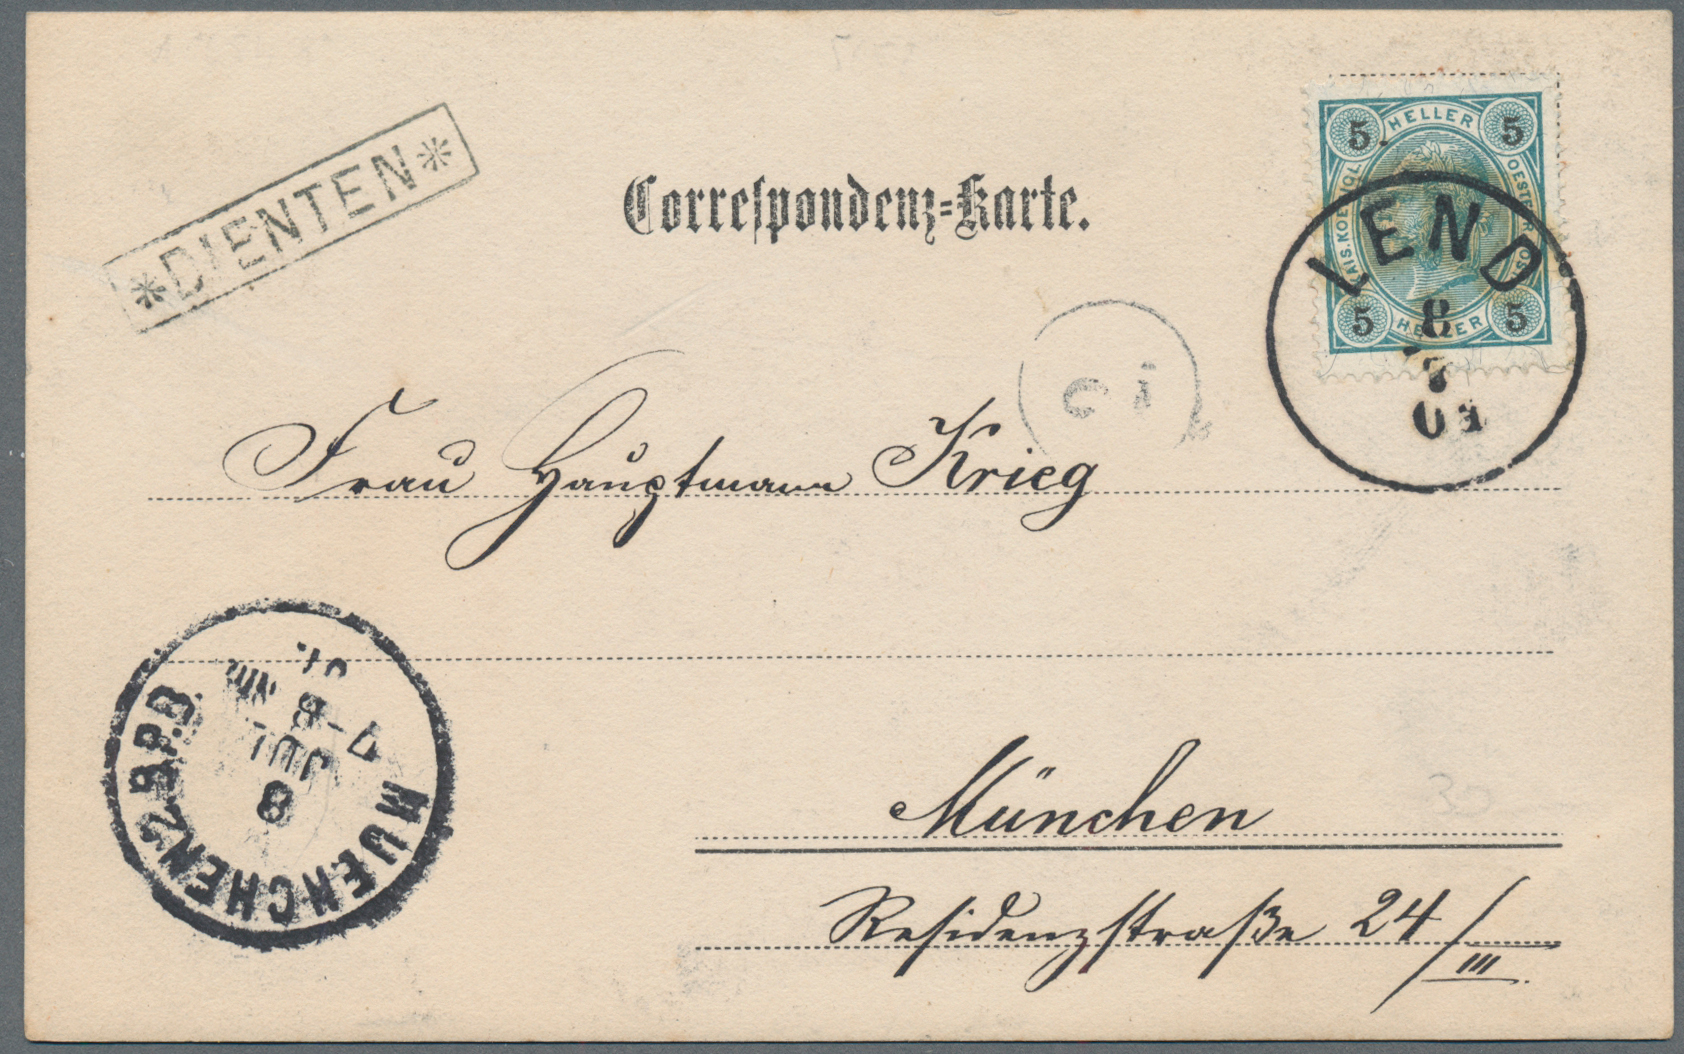 *DIENTEN*
Correspondenz=Karte.
5 HELLER 5
KAIS.KOENIGL. OESTERR. POST
5 HELLER 5
LEND
8
7
01
ci
Frau Hauptmann Krieg
MUENCHEN 2 B.P.B.
8
JUL
7-8
München
Residenzstraße 24/III.